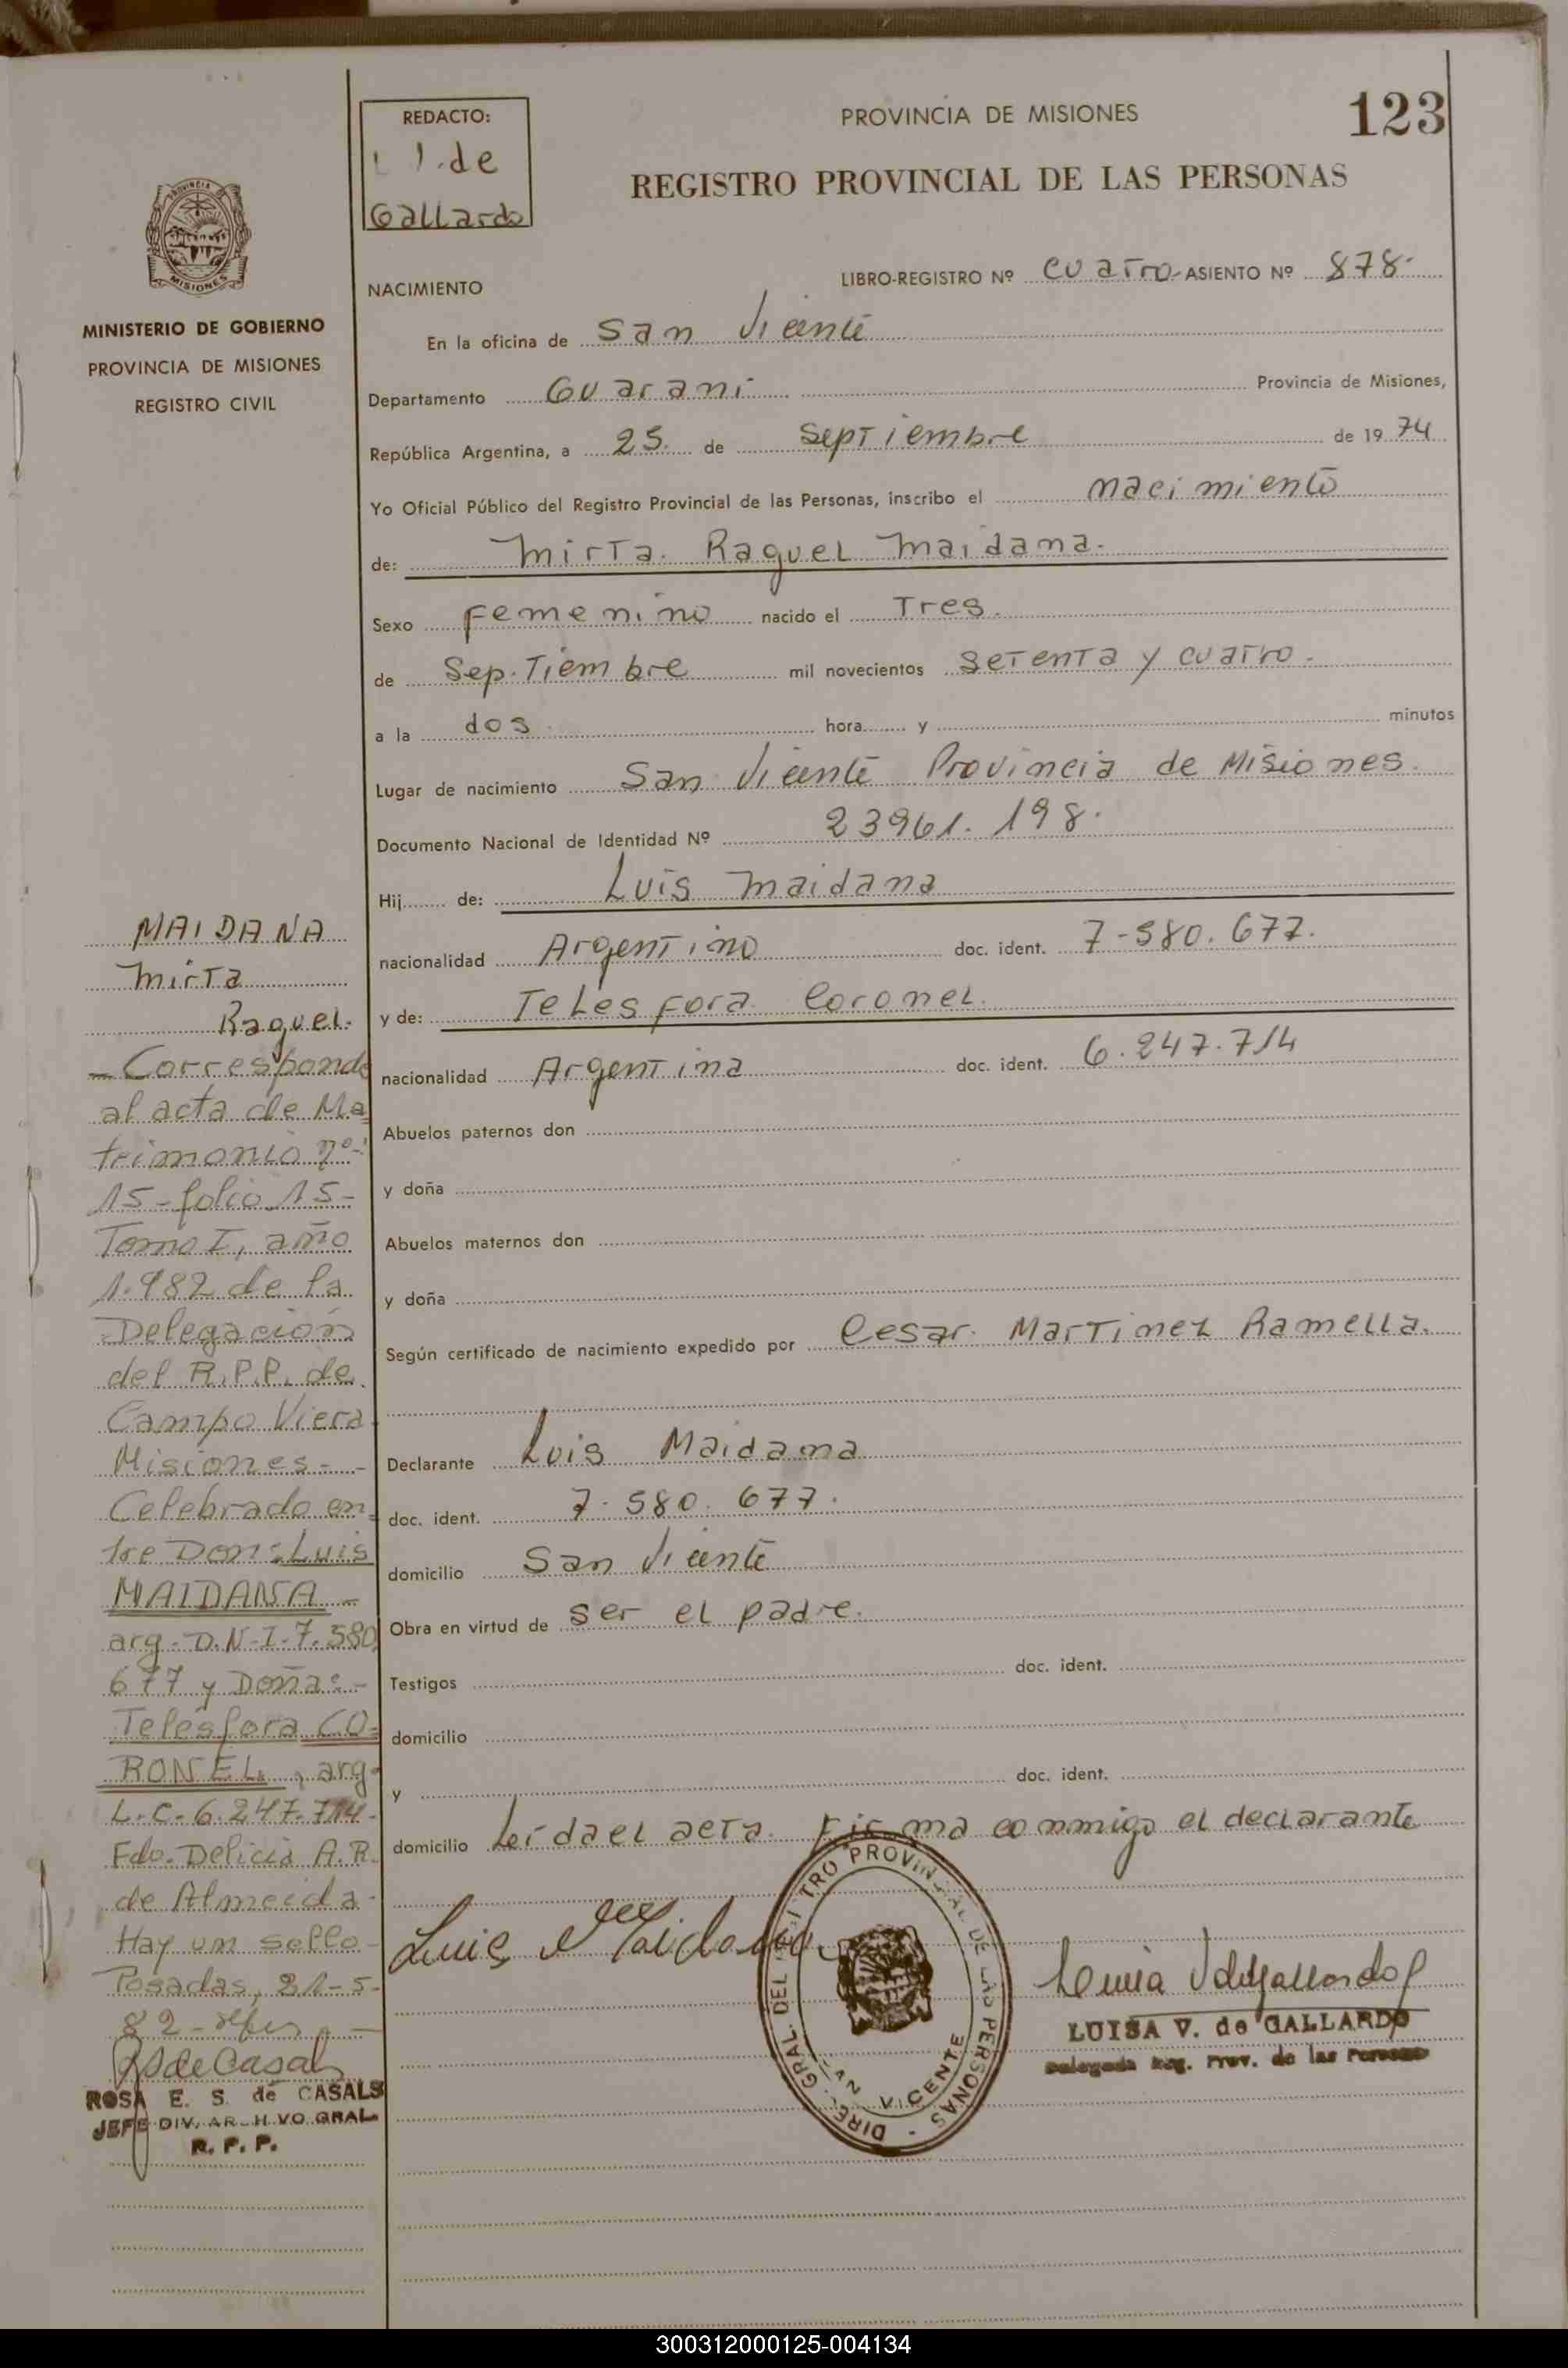 123
PROVINCIA DE MISIONES
REGISTRO PROVINCIAL DE LAS PERSONAS
REDACTO:
V. de
Gallardo
PROVINCIA DE
MISIONES
MINISTERIO DE GOBIERNO
PROVINCIA DE MISIONES
REGISTRO CIVIL
NACIMIENTO
LIBRO-REGISTRO Nº cuatro- ASIENTO Nº 878.
En la oficina de San Vicente
Departamento Guarani Provincia de Misiones,
República Argentina, a 25. de Septiembre de 1974
Yo Oficial Público del Registro Provincial de las Personas, inscribo el nacimiento
de: Mirta Raquel Maidana.
Sexo Femenino nacido el Tres
de Septiembre mil novecientos setenta y cuatro.
a la dos hora y minutos
Lugar de nacimiento San Vicente Provincia de Misiones.
Documento Nacional de Identidad Nº 23961.198.
Hij de: Luis Maidana
nacionalidad Argentino doc. ident. 7-580.677.
y de: Telesfora Coronel.
nacionalidad Argentina doc. ident. 6.247.714
Abuelos paternos don
y doña
Abuelos maternos don
y doña
Según certificado de nacimiento expedido por Cesar Martinez Ramella.
Declarante Luis Maidana
doc. ident. 7.580.677.
domicilio San Vicente
Obra en virtud de ser el padre.
Testigos doc. ident.
domicilio
y doc. ident.
domicilio Leida el acta. Firma conmigo el declarante
Luis Maidana
DIRE. GRAL. DEL REGISTRO PROVINCIAL DE LAS PERSONAS
SAN VICENTE
LUISA V. de GALLARDO
Delegada Reg. Prov. de las Personas
MAIDANA
Mirta
Raquel.
-Corresponde
al acta de Ma
trimonio nº-
15-folio 15-
Tomo I, año
1.982 de la
Delegación
del R.P.P. de
Campo Viera
Misiones--
Celebrado en
tre Don: Luis
MAIDANA-
arg. D.N.I. 7.580
677 y Doña:-
Telésfora CO-
RONEL, arg.
L.C. 6.247.714-
Fdo. Delicia A.R.
de Almeida-
Hay un sello-
Posadas, 21-5-
82-
RSdeCasals
ROSA E. S. de CASALS
JEFE DIV. ARCHIVO GRAL.
R. P. P.
300312000125-004134